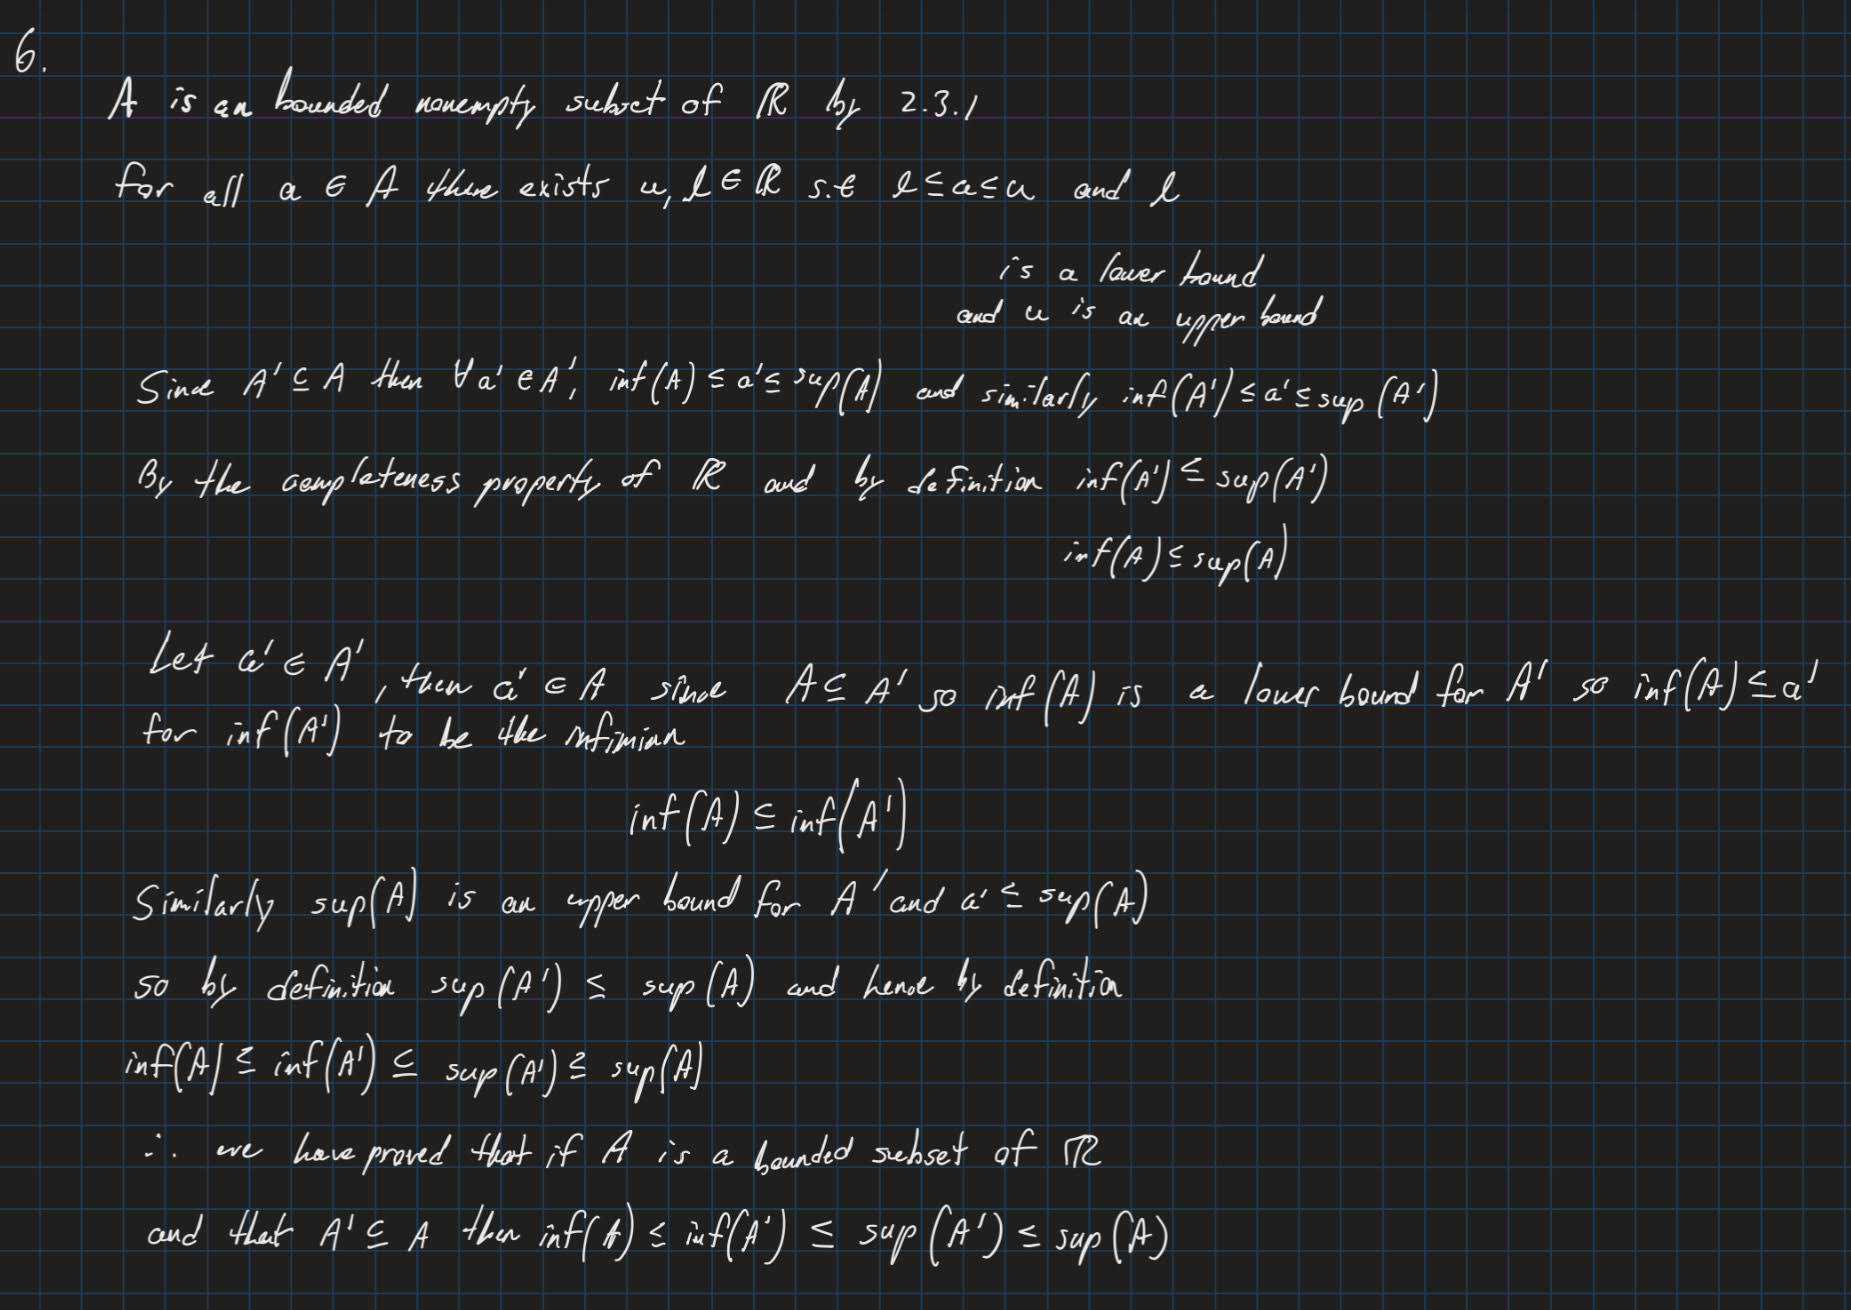 6.
A is an bounded nonempty subset of ℝ by 2.3.1
for all a ∈ A there exists u, l ∈ ℝ s.t l ≤ a ≤ u and l
is a lower bound
and u is an upper bound
Since A' ⊆ A then ∀ a' ∈ A', inf(A) ≤ a' ≤ sup(A) and similarly inf(A') ≤ a' ≤ sup(A')
By the completeness property of ℝ and by definition inf(A') ≤ sup(A')
inf(A) ≤ sup(A)
Let a' ∈ A', then a' ∈ A since A ⊆ A' so inf(A) is a lower bound for A' so inf(A) ≤ a'
for inf(A') to be the infimian
inf(A) ≤ inf(A')
Similarly sup(A) is an upper bound for A' and a' ≤ sup(A)
so by definition sup(A') ≤ sup(A) and hence by definition
inf(A) ≤ inf(A') ≤ sup(A') ≤ sup(A)
∴ we have proved that if A is a bounded subset of ℝ
and that A' ⊆ A then inf(A) ≤ inf(A') ≤ sup(A') ≤ sup(A)